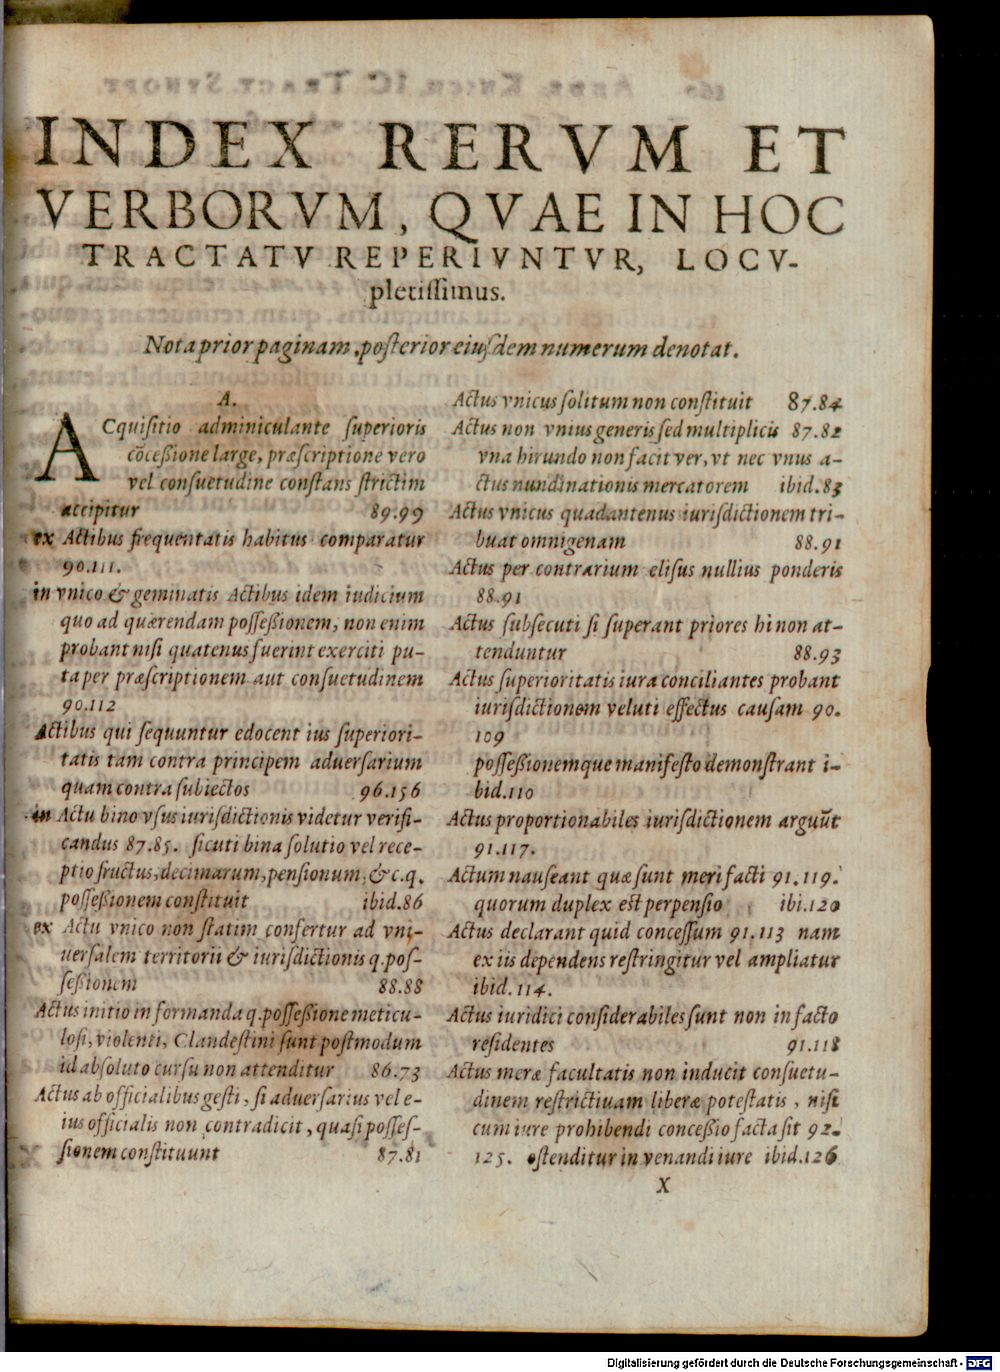 INDEX RERVM ET
VERBORVM, QVAE IN HOC
TRACTATV REPERIVNTVR, LOCV-
pletiſſimus.
Nota prior paginam, poſterior eiuſdem numerum denotat.
A.
ACquiſitio adminiculante ſuperioris
cõceßione large, præſcriptione vero
vel conſuetudine conſtans ſtrictim
accipitur 89.99
ex Actibus frequentatis habitus comparatur
90.111.
in vnico & geminatis Actibus idem iudicium
quo ad quærendam poſſeßionem, non enim
probant niſi quatenus fuerint exerciti pu-
ta per præſcriptionem aut conſuetudinem
90.112
Actibus qui ſequuntur edocent ius ſuperiori-
tatis tam contra principem aduerſarium
quam contra ſubiectos 96.156
in Actu bino vſus iurisdictionis videtur verifi-
candus 87.85. ſicuti bina ſolutio vel rece-
ptio fructus, decimarum, penſionum, &c. q.
poſſeßionem conſtituit ibid.86
ex Actu vnico non ſtatim confertur ad vni-
uerſalem territorii & iurisdictionis q. poſ-
ſeßionem 88.88
Actus initio in formanda q. poſſeßione meticu-
loſi, violenti, Clandeſtini ſunt poſtmodum
id abſoluto curſu non attenditur 86.73
Actus ab officialibus geſti, ſi aduerſarius vel e-
ius officialis non contradicit, quaſi poſſeſ-
ſionem conſtituunt 87.81
Actus vnicus ſolitum non conſtituit 87.84
Actus non vnius generis ſed multiplicis 87.82
vna hirundo non facit ver, vt nec vnus a-
ctus nundinationis mercatorem ibid.83
Actus vnicus quadantenus iurisdictionem tri-
buat omnigenam 88.91
Actus per contrarium eliſus nullius ponderis
88.91
Actus ſubſecuti ſi ſuperant priores hi non at-
tenduntur 88.93
Actus ſuperioritatis iura conciliantes probant
iurisdictionem veluti effectus cauſam 90.
109
poſſeßionemque manifeſto demonſtrant i-
bid.110
Actus proportionabiles iurisdictionem arguũt
91.117.
Actum nauſeant quæ ſunt meri facti 91.119.
quorum duplex eſt perpenſio ibi.120
Actus declarant quid conceſſum 91.113 nam
ex iis dependens reſtringitur vel ampliatur
ibid.114.
Actus iuridici conſiderabiles ſunt non in facto
reſidentes 91.118
Actus meræ facultatis non inducit conſuetu-
dinem reſtrictiuam liberæ poteſtatis, niſi
cum iure prohibendi conceßio facta ſit 92.
125. oſtenditur in venandi iure ibid.126
X
Digitalisierung gefördert durch die Deutsche Forschungsgemeinschaft - DFG